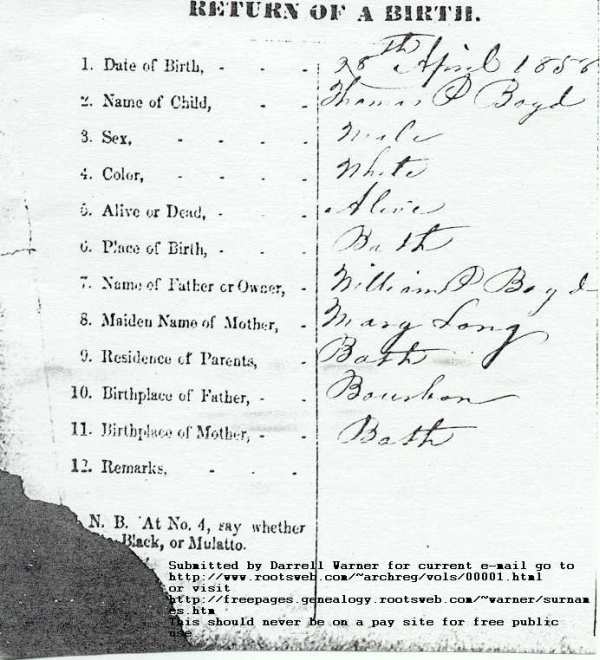 RETURN OF A BIRTH.
1. Date of Birth, - - - 28th April 1858
2. Name of Child, - - Thomas P Boyd
3. Sex, - - - - Male
4. Color, - - - - White
5. Alive or Dead, - - - Alive
6. Place of Birth, - - - Bath
7. Name of Father or Owner, - William P Boyd
8. Maiden Name of Mother, - Mary Long
9. Residence of Parents, - Bath
10. Birthplace of Father, - - Bourbon
11. Birthplace of Mother, - - Bath
12. Remarks, - - -
N. B. At No. 4, say whether
Black, or Mulatto.
Submitted by Darrell Warner for current e-mail go to
http://www.rootsweb.com/~archreg/vols/00001.html
or visit
http://freepages.genealogy.rootsweb.com/~warner/surnam
es.htm
This should never be on a pay site for free public
use